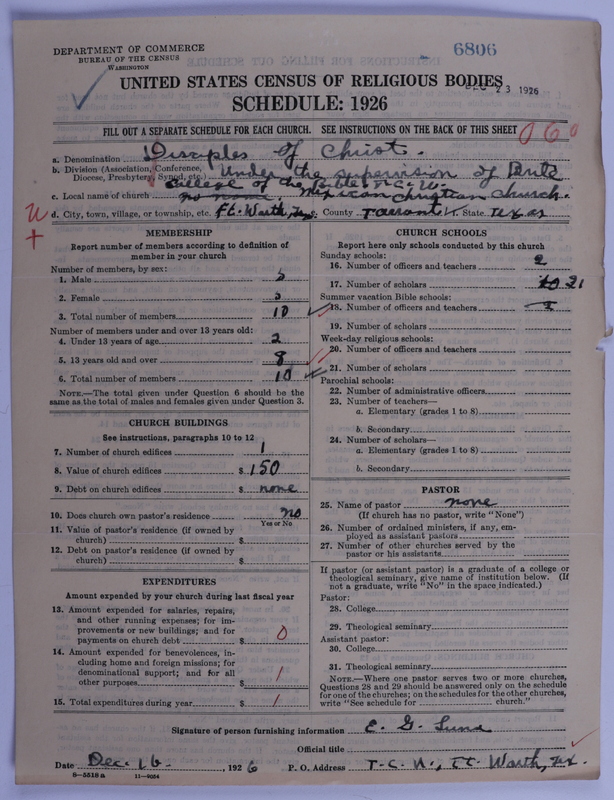 DEPARTMENT OF COMMERCE
BUREAU OF THE CENSUS
WASHINGTON
6806
UNITED STATES CENSUS OF RELIGIOUS BODIES
DEC 23 1926
SCHEDULE: 1926
FILL OUT A SEPARATE SCHEDULE FOR EACH CHURCH. SEE INSTRUCTIONS ON THE BACK OF THIS SHEET
060
a. Denomination Disciples of Christ.
b. Division (Association, Conference, Diocese, Presbytery, Synod, etc.) Under the supervision of Brite
College of the Bible T.C.U.
c. Local name of church no name. Mexican Christian Church.
d. City, town, village, or township, etc. Ft. Worth, Tex. e. County Tarrant f. State Texas
MEMBERSHIP
Report number of members according to definition of
member in your church
Number of members, by sex:
1. Male 5
2. Female 5
3. Total number of members 10
Number of members under and over 13 years old:
4. Under 13 years of age 2
5. 13 years old and over 8
6. Total number of members 10
NOTE.—The total given under Question 6 should be
same as the total of males and females given under Question 3.
CHURCH BUILDINGS
See instructions, paragraphs 10 to 12
7. Number of church edifices 1
8. Value of church edifices $ 150
9. Debt on church edifices $ none
10. Does church own pastor's residence no
Yes or No
11. Value of pastor's residence (if owned by
church) $
12. Debt on pastor's residence (if owned by
church) $
EXPENDITURES
Amount expended by your church during last fiscal year
13. Amount expended for salaries, repairs,
and other running expenses; for im-
provements or new buildings; and for
payments on church debt $ 0
14. Amount expended for benevolences, in-
cluding home and foreign missions; for
denominational support; and for all
other purposes $ 1
15. Total expenditures during year $ 1
CHURCH SCHOOLS
Report here only schools conducted by this church
Sunday schools:
16. Number of officers and teachers 2
17. Number of scholars 21
Summer vacation Bible schools:
18. Number of officers and teachers
19. Number of scholars
Week-day religious schools:
20. Number of officers and teachers
21. Number of scholars
Parochial schools:
22. Number of administrative officers
23. Number of teachers—
a. Elementary (grades 1 to 8)
b. Secondary
24. Number of scholars—
a. Elementary (grades 1 to 8)
b. Secondary
PASTOR
25. Name of pastor none
(If church has no pastor, write "None")
26. Number of ordained ministers, if any, em-
ployed as assistant pastors
27. Number of other churches served by the
pastor or his assistants
If pastor (or assistant pastor) is a graduate of a college or
theological seminary, give name of institution below. (If
not a graduate, write "No" in the space indicated.)
Pastor:
28. College
29. Theological seminary
Assistant pastor:
30. College
31. Theological seminary
NOTE.—Where one pastor serves two or more churches,
Questions 28 and 29 should be answered only on the schedule
for one of the churches; on the schedules for the other churches,
write "See schedule for church."
Signature of person furnishing information E. G. Luna
Official title
Date Dec. 16, 1926 P. O. Address T. C. U., Ft. Worth, Tex.
8—5518 a 11—9054